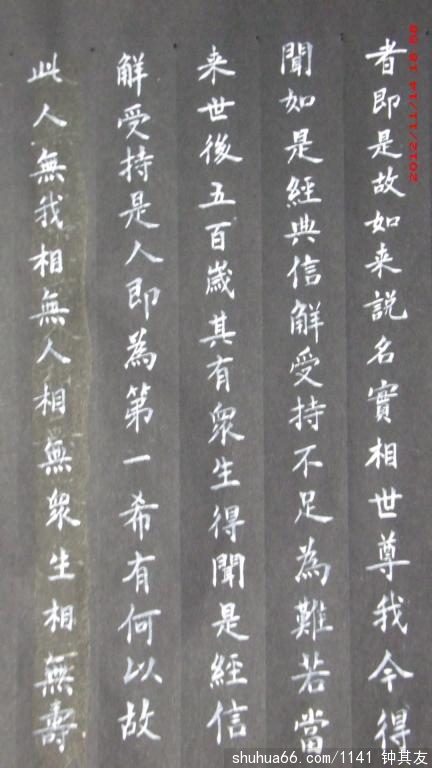 者即是故如来説名實相世尊我今得
聞如是經典信解受持不足為難若當
来世後五百歲其有眾生得聞是經信
解受持是人即為第一希有何以故
此人無我相無人相無眾生相無壽
2012/11/14 18 08
shuhua66.com/1141 钟其友